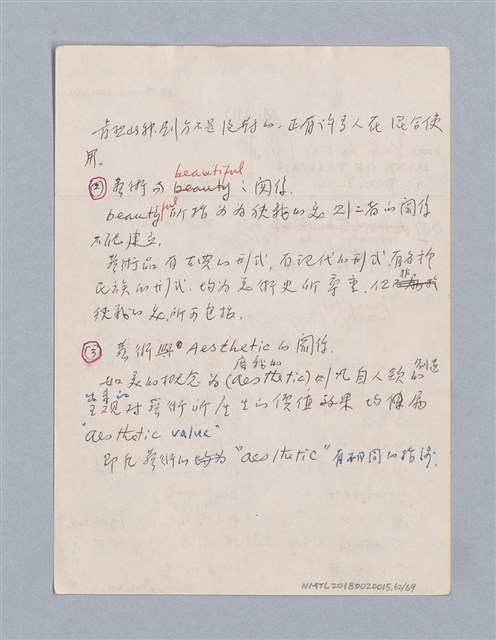 旁，此種劃分不是絕對的，正有許多人在混合使
用。
② 藝術与 beautiful 之関係.
beautyful 所指為狹義的美 則二者的関係
不能建立.
藝術品有古典的形式，有現代的形式，有各種
民族的形式，均為美術史所尊重，但非
狹義的美所可包括.
③ 藝術與 Aesthetic 的関係.
如美的概念為廣義的(aesthetic)則凡自人類的創造
出來的
主観对藝術所產生的價值效果均隸屬
"aesthetic value"
即凡藝術的 "aesthetic" 有相同的指涉.
NMTL20180020015.62/69